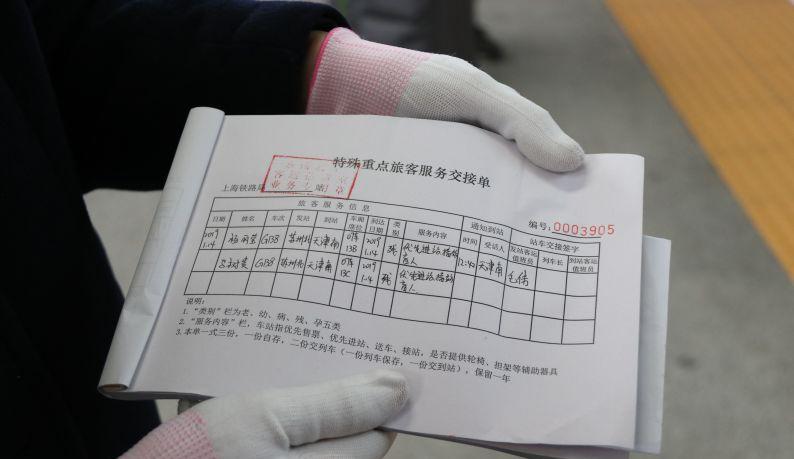 特殊重点旅客服务交接单
上海铁路局
业务专
章
编号:0003905
旅客服务信息 通知到站 站车交接签字
日期 姓名 车次 发站 到站 车厢席位 到达日期 类别 服务内容 时间 受话人 发站客运值班员 列车长 到站客运值班员
2019 1.14 G138 苏州北 天津南 13B 2019 1.14 残 优先进站 盲人 天津南
G138 苏州北 天津南 13C 2019 1.14 残 优先进站 盲人
说明:
1. “类别”栏为老、幼、病、残、孕五类
2. “服务内容”栏，车站指优先售票、优先进站、送车、接站，是否提供轮椅、担架等辅助器具
3. 本单一式三份，一份自存，二份交列车（一份列车保存，一份交到站），保留一年